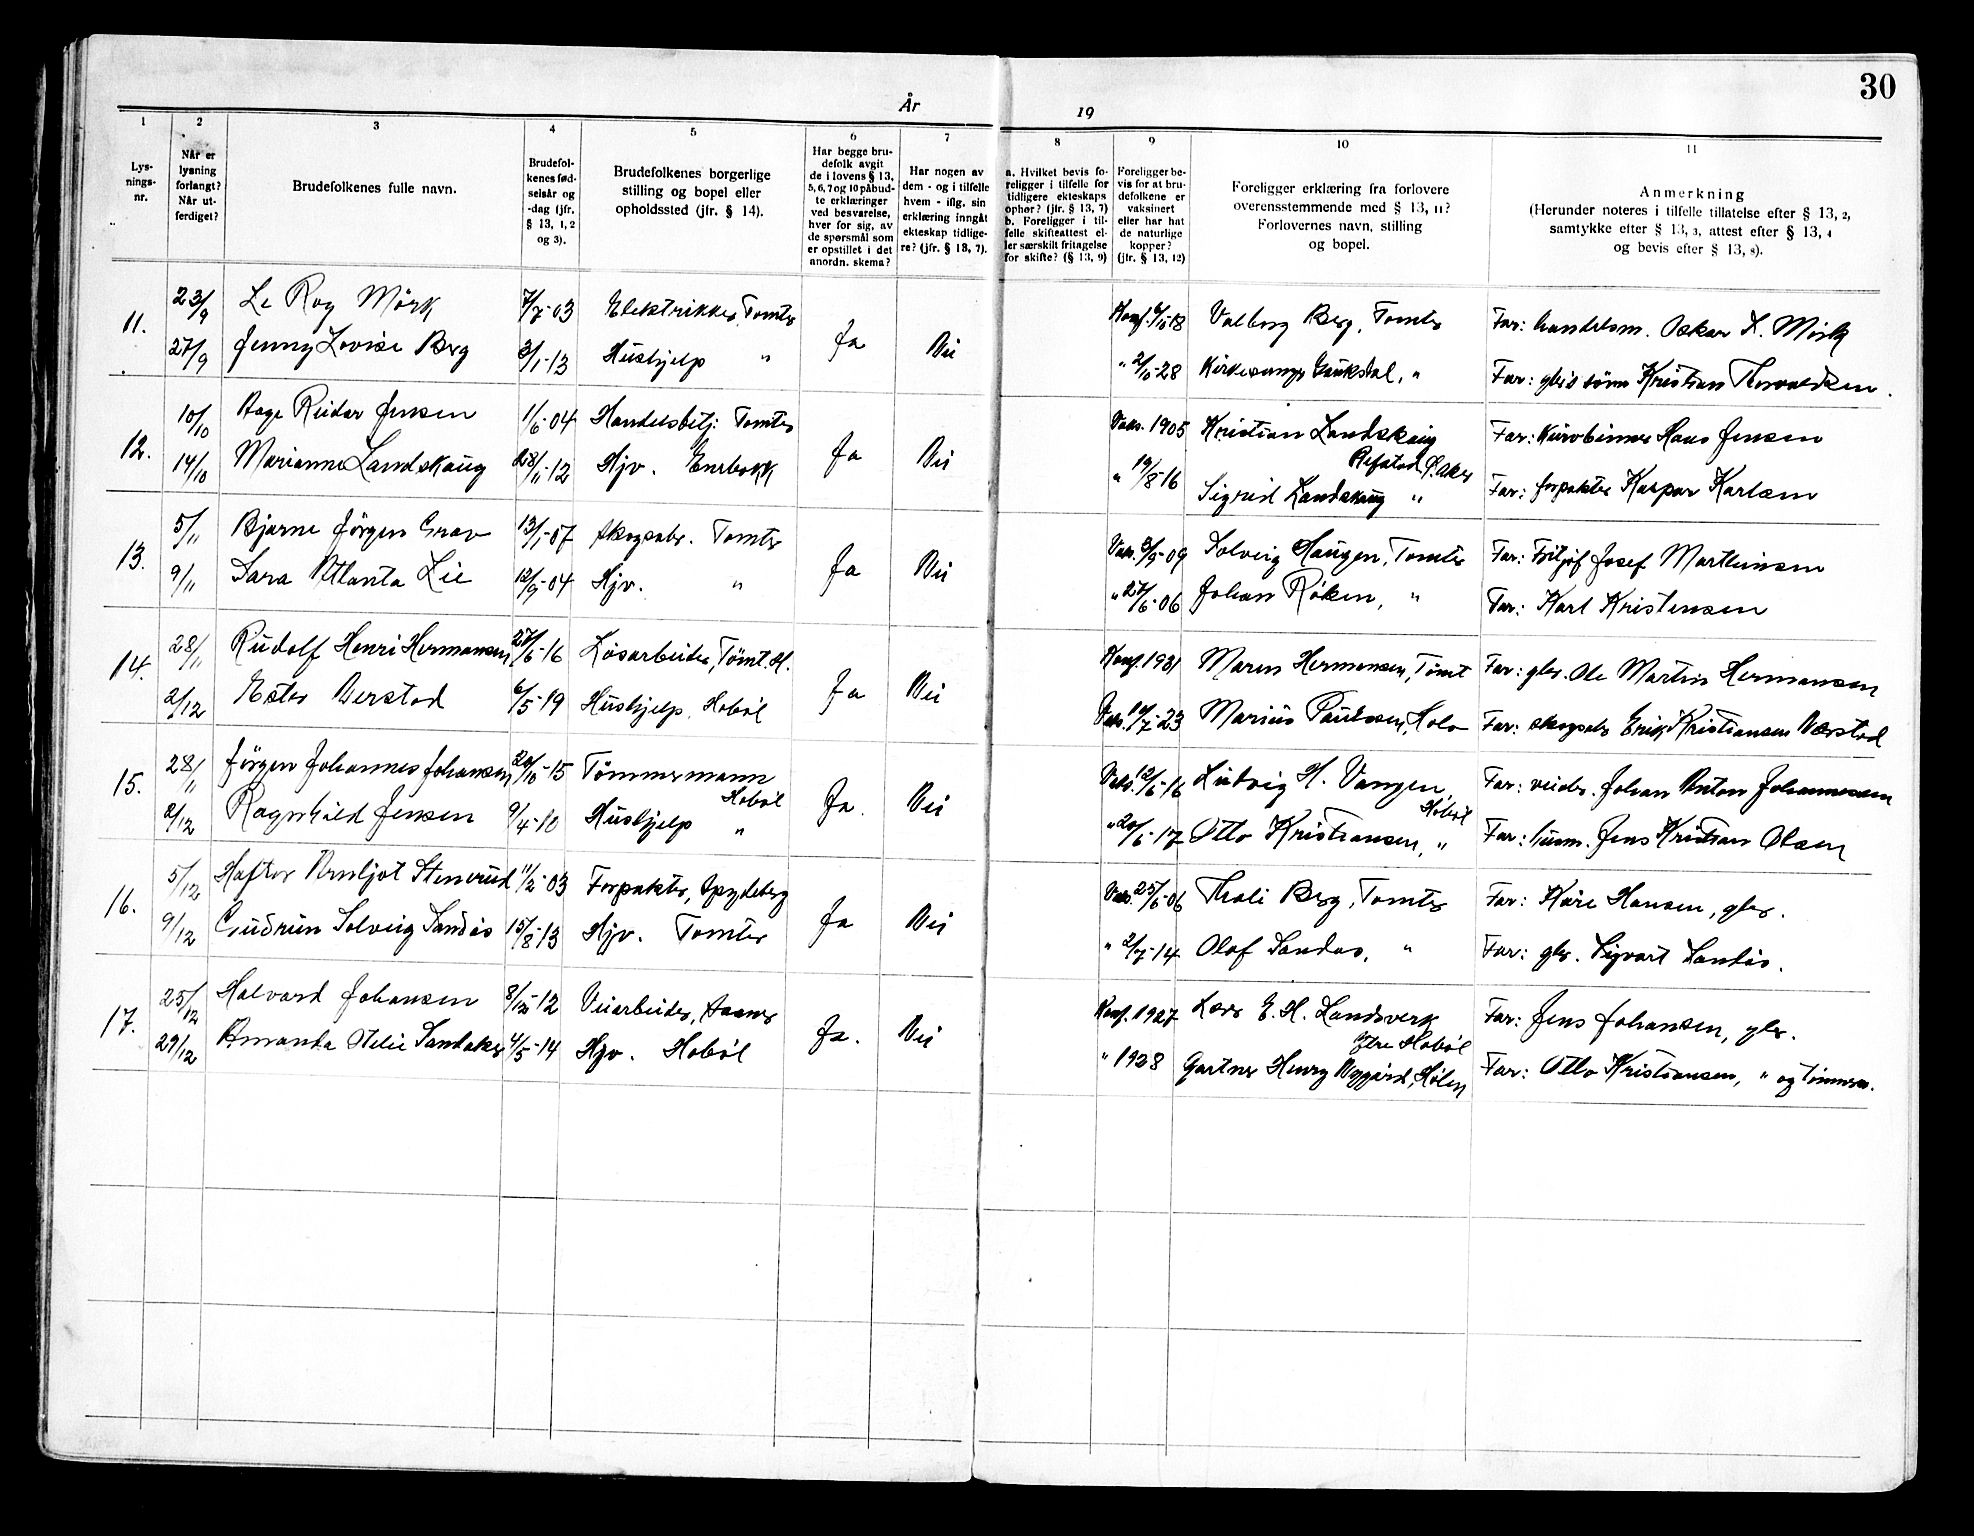 30
År 19
1 2 3 4 5 6 7 8 9 10 11
Lys-
nings-
nr.
Når er
lysning
forlangt?
Når ut-
ferdiget?
Brudefolkenes fulle navn.
Brudefol-
kenes fød-
selsår og
-dag (jfr.
§ 13, 1, 2
og 3).
Brudefolkenes borgerlige
stilling og bopel eller
opholdssted (jfr. § 14).
Har begge bru-
defolk avgit
de i lovens § 13,
5, 6, 7 og 10 påbud-
te erklæringer
ved besvarelse,
hver for sig, av
de spørsmål som
er opstillet i det
anordn. skema?
Har nogen av
dem - og i tilfelle
hvem - iflg. sin
erklæring inngått
ekteskap tidlige-
re? (jfr. § 13, 7).
a. Hvilket bevis fo-
religger i tilfelle for
tidligere ekteskaps
ophør? (jfr. § 13, 7)
b. Foreligger i til-
felle skifteattest el-
ler særskilt fritagelse
for skifte? (§ 13, 9)
Foreligger be-
vis for at bru-
defolkene er
vaksinert
eller har hat
de naturlige
kopper?
(jfr. § 13, 12)
Foreligger erklæring fra forlovere
overensstemmende med § 13, 11?
Forlovernes navn, stilling
og bopel.
Anmerkning
(Herunder noteres i tilfelle tillatelse efter § 13, 2,
samtykke efter § 13, 3, attest efter § 13, 4
og bevis efter § 13, 8).
11. 23/9 Le Roy Mörk 7/7-03 Elektriker, Tomter Ja Nei Konf. 18 Valborg Berg, Tomter Far: handelsm. Oskar L. Mörk
27/9 Jenny Lovise Berg 3/1-13 Hushjelp " " 2/10-28 Kirkesanger Gaukstad, " Far: Kristian Thorvaldsen.
12. 10/10 Aage Reidar Jensen 1/6-04 Handelsbetj: Tomter Ja Nei Vaks. 1905 Kristian Landskaug Far: Hans Jensen
Refstad Ö. Aker
14/10 Marianne Landskaug 28/11-12 Hjv. Enebakk " 19/8-16 Sigrid Landskaug " Far: forpakter Kaspar Karlsen
13. 5/11 Bjarne Jörgen Grav 13/1-07 Skogsarb. Tomter Ja Nei Vaks. 3/9-09 Solveig Haugen, Tomter Far: Fritjof Josef Martinsen
9/11 Sara Atlanta Lie 12/9-04 Hjv. " " 27/6-06 Johan Röken, " Far: Karl Kristensen
14. 28/11 Rudolf Henri Hermansen 27/6-16 Lösarbeider, Tömt. H. Ja Nei Konf. 1931 Maren Hermansen, Tömt Far: gbr. Ole Martin Hermansen
2/12 Ester Verstad 6/5-19 Hushjelp, Hoböl Vaks. 10/7-23 Marius Paulssen, Far: skogsarb Erik Kristiansen Værstad
15. 28/11 Jörgen Johannes Johansen 20/10-15 Tömmermann Ja. Nei Vaks. 12/6-16 Ludvig H. Vangen, Far: veiarb. Johan Anton Johannessen
Hoböl Hoböl
2/12 Ragnhild Jensen 9/4-10 Hushjelp " " 20/6-17 Otto Kristiansen, " Far: Jens Kristian Olsen
16. 5/12 Haftor Arnljot Stenerud 11/2-03 Forpakter, Spydeberg Ja Nei Vaks. 25/6-06 Berg, Tomter Far: Käre Hansen, gbr.
9/12 Gudrun Solveig Sandås 15/8-13 Hjv. Tomter " 2/7-14 Olaf Sandas, " Far: gbr. Sigvart Sandås.
17. 25/12 Halvard Johansen 8/12-12 Veiarbeider, Ja. Nei Konf. 1927 Lars E. H. Landsverk Far: Jens Johansen, gbr.
Ytre Hoböl
29/12 Amanda Otelie Sandaker 4/5-14 Hjv. Hoböl " 1928 Gartner Henry Nygård, Hölen Far: Otto Kristiansen, " og tömmerm.